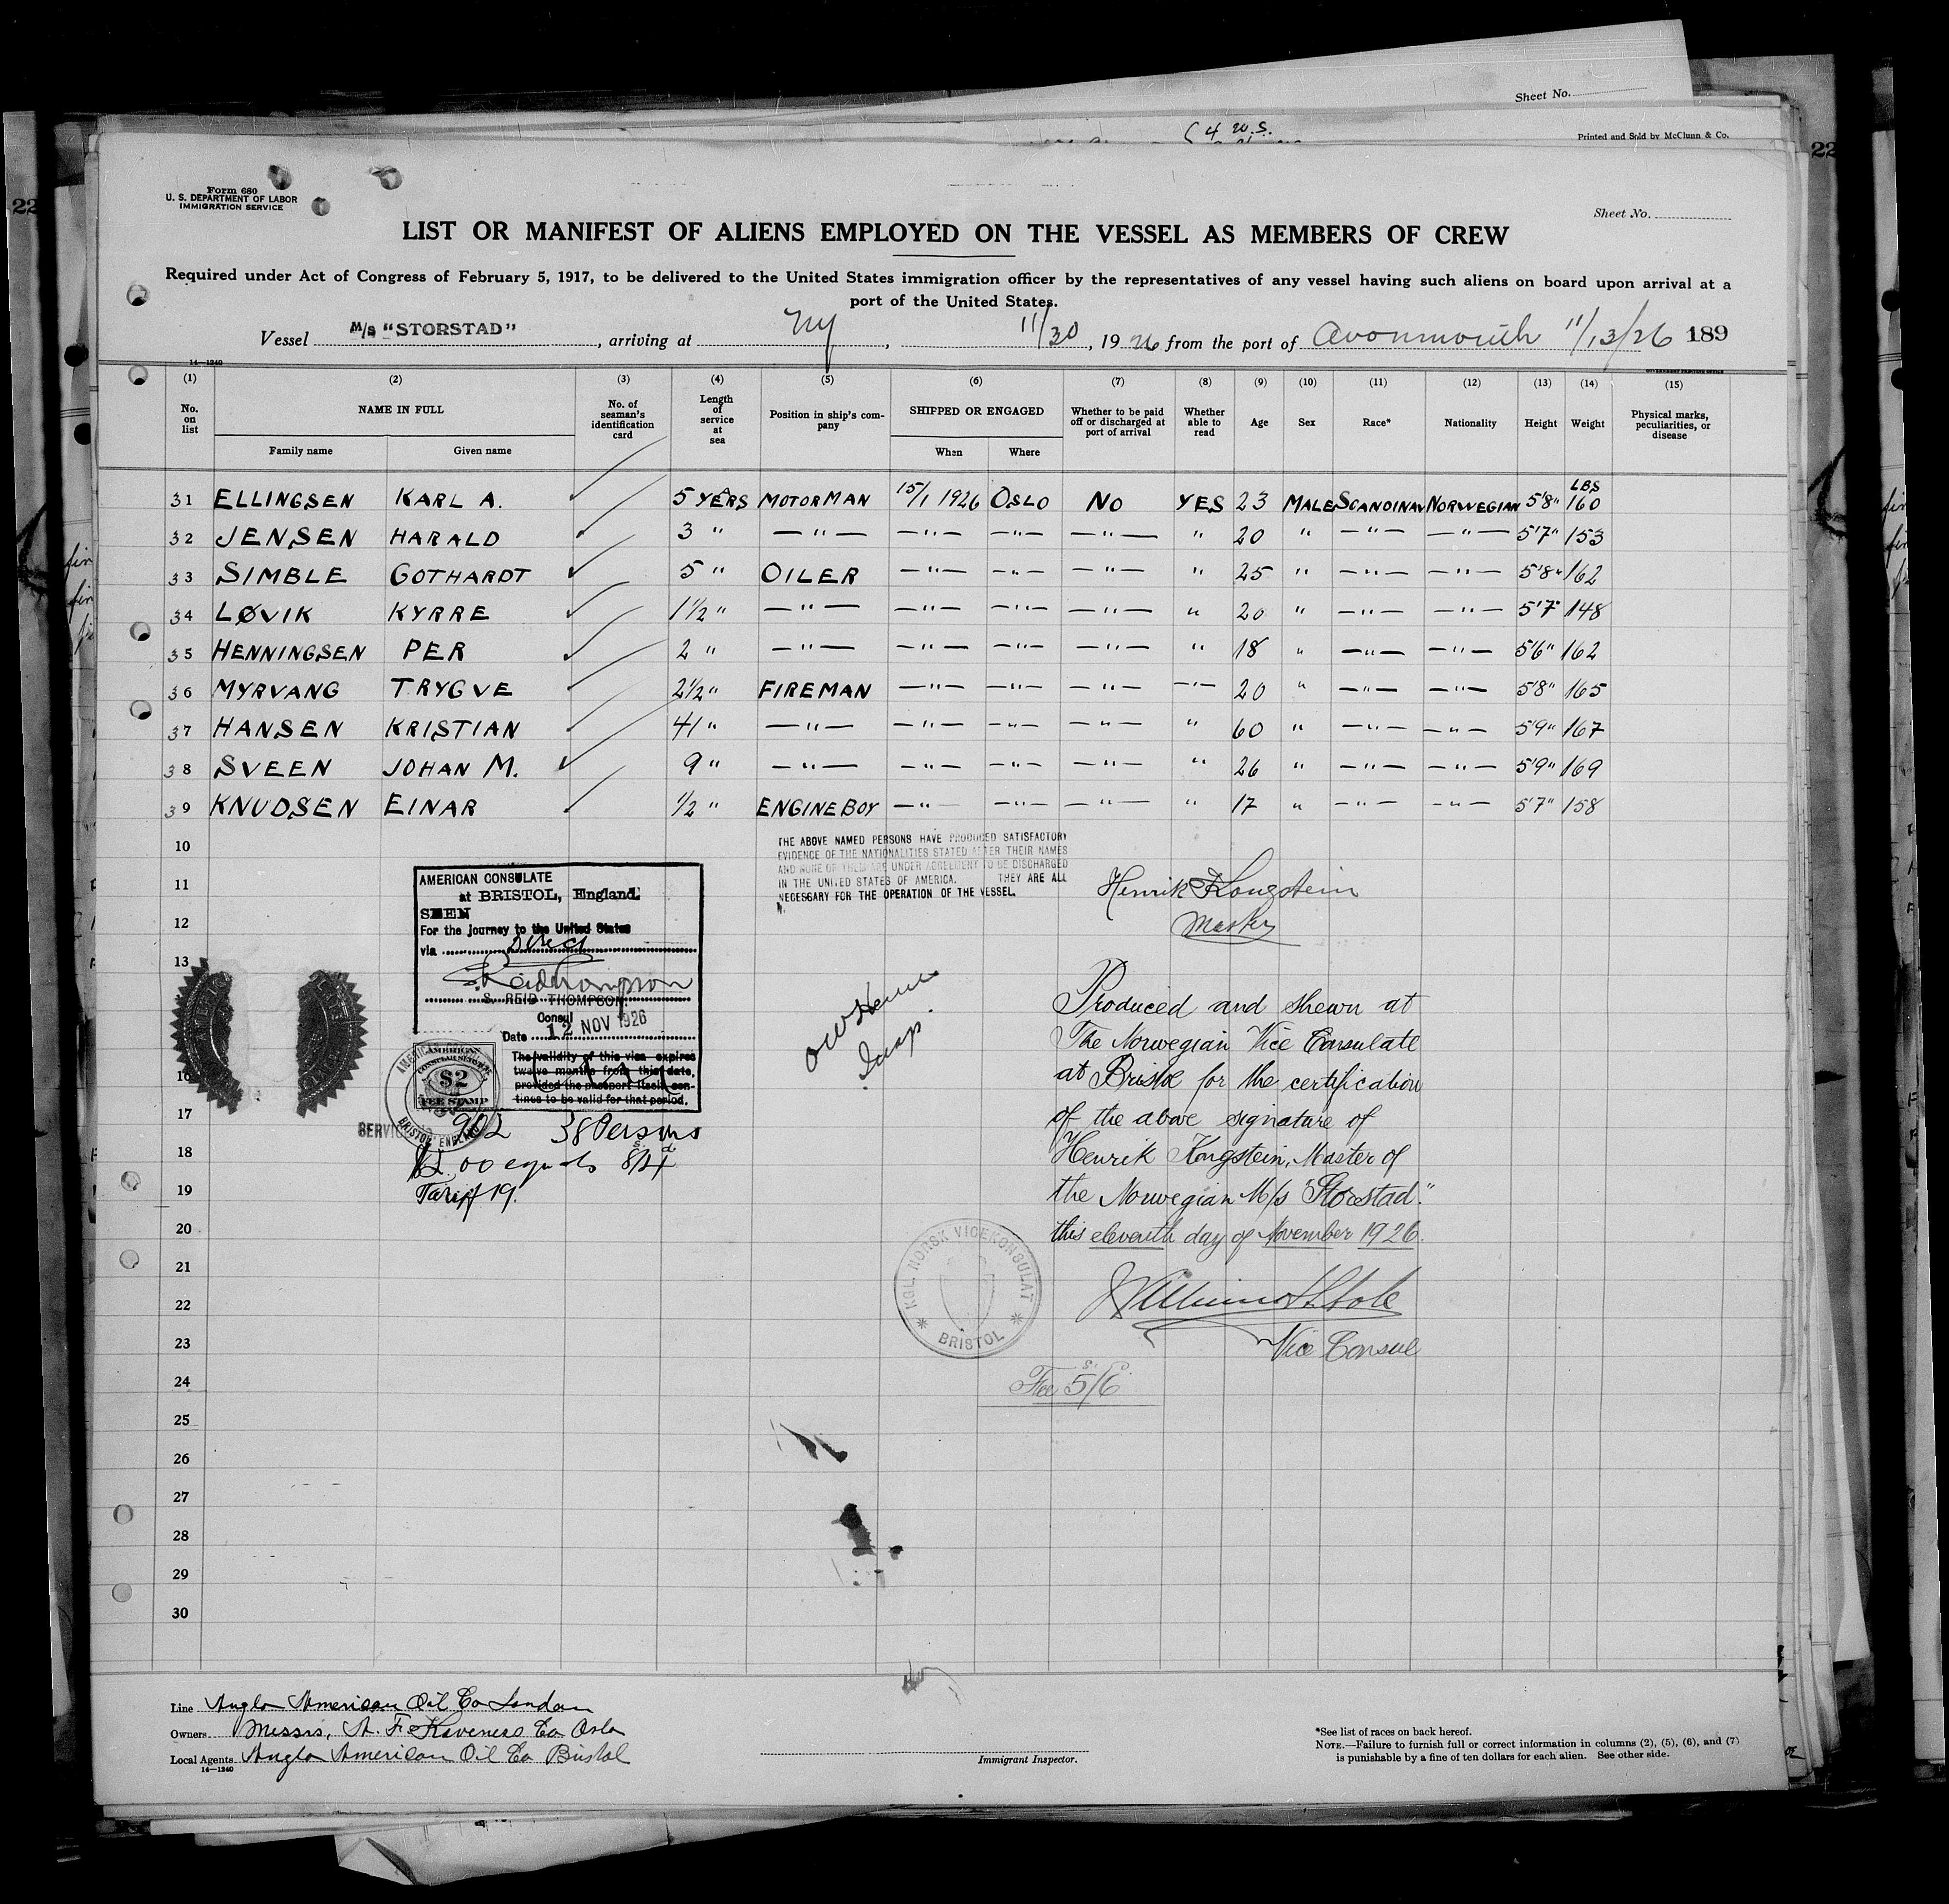 Sheet No.
(4 w.s.
Printed and Sold by McClunn & Co.
22
22
Form 680
U. S. DEPARTMENT OF LABOR
IMMIGRATION SERVICE
Sheet No.
LIST OR MANIFEST OF ALIENS EMPLOYED ON THE VESSEL AS MEMBERS OF CREW
Required under Act of Congress of February 5, 1917, to be delivered to the United States immigration officer by the representatives of any vessel having such aliens on board upon arrival at a
port of the United States.
Vessel M/s "STORSTAD", arriving at NY, 11/30, 1926 from the port of Avonmouth 11/13/26 189
14—1240
(1) (2) (3) (4) (5) (6) (7) (8) (9) (10) (11) (12) (13) (14) (15)
No. on list NAME IN FULL No. of seaman's identification card Length of service at sea Position in ship's company SHIPPED OR ENGAGED Whether to be paid off or discharged at port of arrival Whether able to read Age Sex Race* Nationality Height Weight Physical marks, peculiarities, or disease
Family name Given name When Where
LBS
31 ELLINGSEN KARL A. 5 YEARS MOTORMAN 15/1 1926 OSLO NO YES 23 MALE SCANDINAV NORWEGIAN 5'8" 160
32 JENSEN HARALD 3 " —"— —"— —"— —"— " 20 " —"— —"— 5'7" 153
33 SIMBLE GOTHARDT 5 " OILER —"— —"— —"— " 25 " —"— —"— 5'8" 162
34 LØVIK KYRRE 1½ " —"— —"— —"— —"— " 20 " —"— —"— 5'7" 148
35 HENNINGSEN PER 2 " —"— —"— —"— —"— " 18 " —"— —"— 5'6" 162
36 MYRVANG TRYGVE 2½ " FIREMAN —"— —"— —"— —"— 20 " —"— —"— 5'8" 165
37 HANSEN KRISTIAN 41 " —"— —"— —"— —"— " 60 " —"— —"— 5'9" 167
38 SVEEN JOHAN M. 9 " —"— —"— —"— —"— " 26 " —"— —"— 5'9" 169
39 KNUDSEN EINAR ½ " ENGINE BOY —"— —"— —"— " 17 " —"— —"— 5'7" 158
10
11
12
13
16
17
18
19
20
21
22
23
24
25
26
27
28
29
30
THE ABOVE NAMED PERSONS HAVE PRODUCED SATISFACTORY
EVIDENCE OF THE NATIONALITIES STATED AFTER THEIR NAMES
AND NONE OF THEM ARE UNDER AGREEMENT TO BE DISCHARGED
IN THE UNITED STATES OF AMERICA. THEY ARE ALL
NECESSARY FOR THE OPERATION OF THE VESSEL.
Henrik Kongstein
Master
AMERICAN CONSULATE
at BRISTOL, England.
SEEN
For the journey to the United States
via Direct
S. Reid Thompson
S. REID THOMPSON.
Consul
Date 12 NOV 1926
The validity of this visa expires
twelve months from this date,
provided the passport itself con-
tinues to be valid for that period.
AMERICAN
CONSULAR SERVICE
$2
FEE STAMP
BRISTOL, ENGLAND
SERVICE No. 902 38 Persons
$2.00 equals 8/4
Tariff 19.
Insp.
Produced and shewn at
The Norwegian Vice Consulate
at Bristol for the certification
of the above signature of
Henrik Kongstein, Master of
the Norwegian M/s "Storstad".
this eleventh day of November 1926.
Vice Consul
KGL. NORSK VICEKONSULAT
BRISTOL
Fee 5/6
Line Anglo American Oil Co London
Owners Messrs, A. F. Klaveness Co Oslo
Local Agents Anglo American Oil Co Bristol
14—1240
Immigrant Inspector.
*See list of races on back hereof.
NOTE.—Failure to furnish full or correct information in columns (2), (5), (6), and (7)
is punishable by a fine of ten dollars for each alien. See other side.